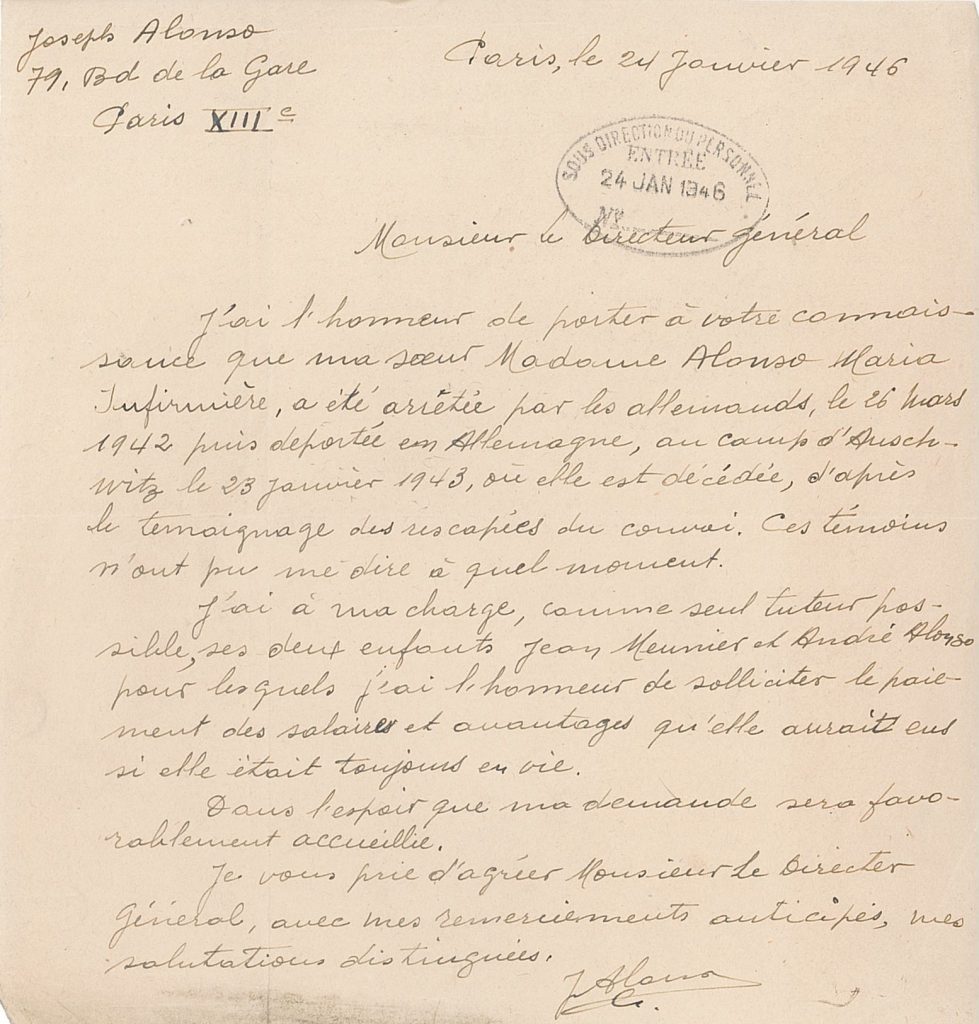 Joseph Alonso
79, Bd de la Gare
Paris XIIIe
Paris, le 24 Janvier 1946
SOUS DIRECTION DU PERSONNEL
ENTRÉE
24 JAN 1946
No
Monsieur le Directeur Général
J'ai l'honneur de porter à votre connais-
sance que ma sœur Madame Alonso Maria
Infirmière, a été arrêtée par les allemands, le 26 Mars
1942 puis déportée en Allemagne, au camp d'Ausch-
witz le 23 janvier 1943, où elle est décédée, d'après
le temoignage des rescapées du convoi. Ces témoins
n'ont pu me dire à quel moment.
J'ai à ma charge, comme seul tuteur pos-
sible, ses deux enfants Jean Meunier et André Alonso
pour lesquels j'ai l'honneur de solliciter le paie-
ment des salaires et avantages qu'elle aurait eus
si elle était toujours en vie.
Dans l'espoir que ma demande sera favo-
rablement accueillie.
Je vous prie d'agréer Monsieur le Directer
Général, avec mes remerciements anticipés, mes
salutations distinguées.
J Alonso